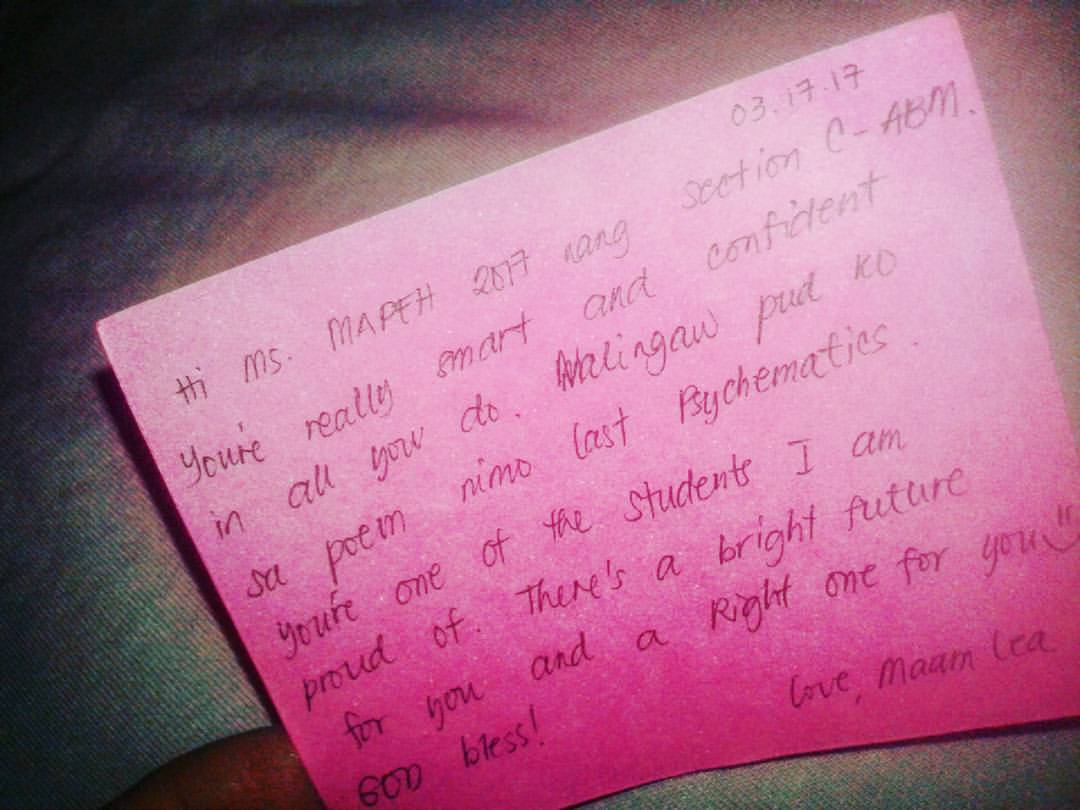 03.17.17
Hi Ms. MAPEH 2017 nang section C-ABM.
You're really smart and confident
in all you do. Nalingaw pud ko
sa poem nimo last Psychematics.
you're one of the students I am
proud of. There's a bright future
for you and a Right one for you
GOD bless!
Love, Maam Lea